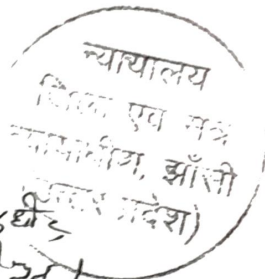 न्यायालय
जिला एवं सत्र
न्यायाधीश, झाँसी
(उत्तर प्रदेश)